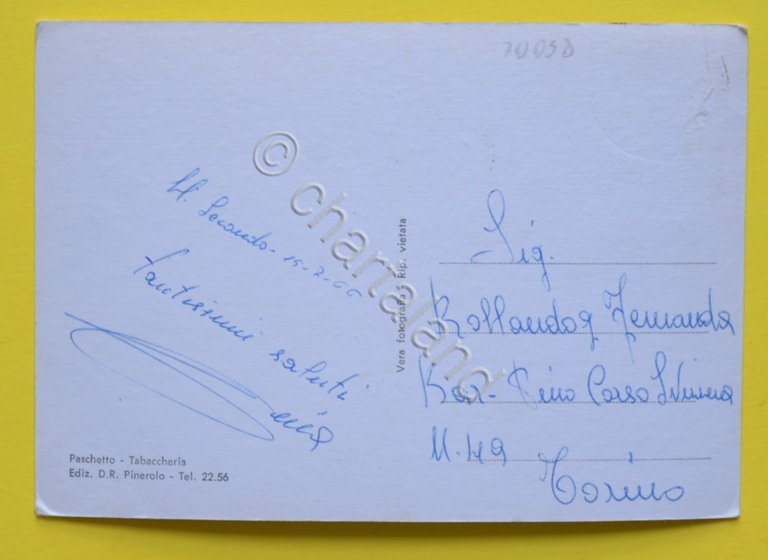 70098
© chartaland
Secondo - 15-2-66
tantissimi saluti
Vera fotografia - Rip. vietata
Sig.
Fernanda
Bar - Corso Svizzera
N. 49
Torino
Paschetto - Tabaccheria
Ediz. D.R. Pinerolo - Tel. 22.56